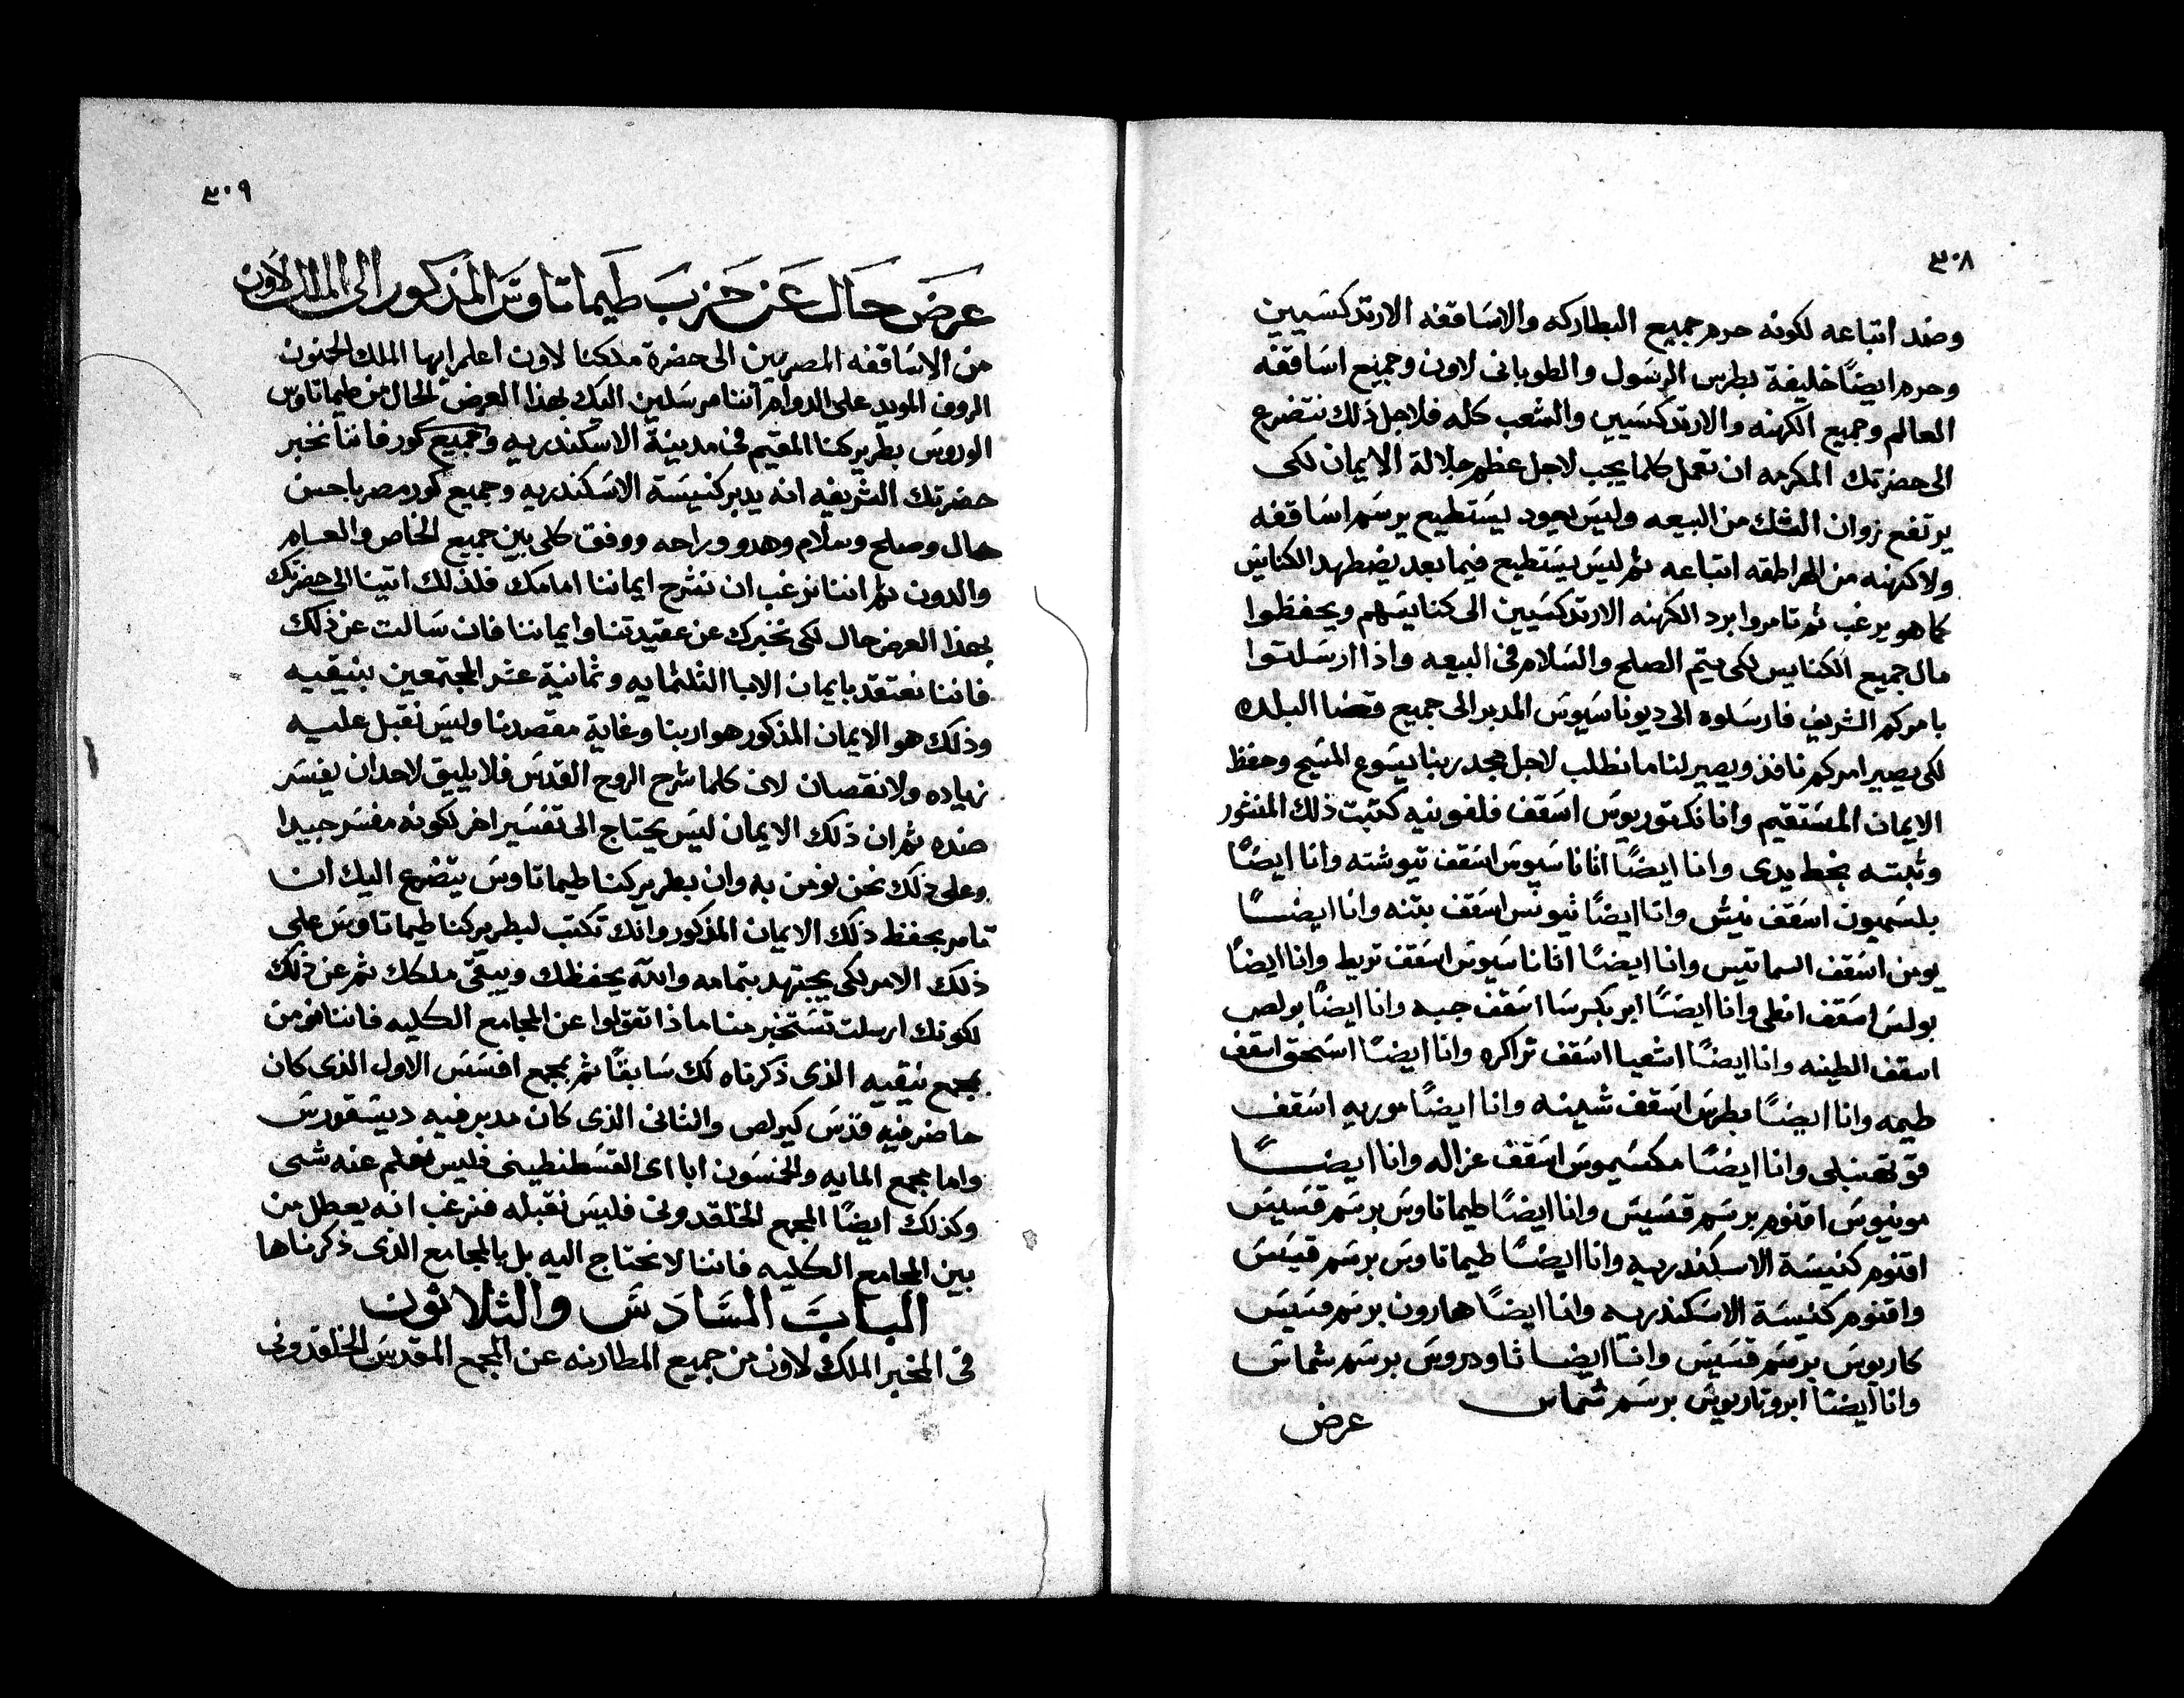 ٣٠٨
وضد اتباعه لكونه حرم جميع البطاركه والاساقفه الارتدكسيين
وحرم ايضًا خليفة بطرس الرسول والطوبانى لاون وجميع اساقفة
العالم وجميع الكهنه والارتدكسيين والشعب كله فلاجل ذلك نتضرع
الى حضرتك المكرمه ان تعمل كلما يجب لاجل عظم جلالة الايمان لكى
يرتفع زوان الشك من البيعه وليس يعود يستطيع يرسم اساقفه
ولا كهنه من الهراطقه اتباعه ثم ليس يستطيع فيما بعد يضطهد الكنايس
كما هو يرغب ثم تامروا برد الكهنه الارتدكسيين الى كنايسهم ويحفظوا
مال جميع الكنايس لكى يتم الصلح والسلام فى البيعه واذا ارسلتوا
بامركم الشريف فارسلوه الى ديوناسيوس المدبر الى جميع قضا البلده
لكى يصير امركم نافذ ويصير لنا ما نطلب لاجل مجد ربنا يسوع المسيح وحفظ
الايمان المستقيم وانا نكتوريوس اسقف فلفونيه كتبت ذلك المنشور
وثبته بخط يدى وانا ايضًا اثاناسيوس اسقف تيوشته وانا ايضًا
بلسميون اسقف نيش وانا ايضًا ثيونس اسقف بتنه وانا ايضًا
يوبن اسقف السماتيس وانا ايضًا اثاناسيوس اسقف تربط وانا ايضًا
بولس اسقف انطى وانا ايضًا ابربكرسا اسقف جبه وانا ايضًا بولص
اسقف الطينه وانا ايضًا اشعيا اسقف تراكره وانا ايضًا اسحق اسقف
طيمه وانا ايضًا بطرس اسقف شدينه وانا ايضًا موريه اسقف
قوتقنبلى وانا ايضًا مكسيموس اسقف غزاله وانا ايضًا
مونيوس اقنوم برسم قسيس وانا ايضًا طيماتاوس برسم قسيس
اقنوم كنيسة الاسكندريه وانا ايضًا طيماتاوس برسم قسيس
واقنوم كنيسة الاسكندريه وانا ايضًا هارون برسم قسيس
كاريوس برسم قسيس وانا ايضا ثاودروس برسم شماس
وانا ايضا ابروتاريوس برسم شماس
عرض
٣٠٩
عرض حال عن حزب طيماتاوس المذكور الى الملك لاون
من الاساقفه المصريين الى حضرة ملكنا لاون اعلم ايها الملك الحنون
الروف المويد على الدوام اننا مرسلين اليك بهذا العرض الحال من طيماتاوس
الوروس بطريركنا المقيم فى مدينة الاسكندريه وجميع كور فاننا نخبر
حضرتك الشريفه انه يدبر كنيسة الاسكندريه وجميع كور مصر باحسن
حال وصلح وسلام وهدو وراحه ووفق كلى بين جميع الخاص والعام
والدون ثم اننا نرغب ان نشرح ايماننا امامك فلذلك اتينا الى حضرتك
بهذا العرض حال لكى نخبرك عن عقيدتنا وايماننا فان سالت عن ذلك
فاننا نعتقد بايمان الابا الثلثمايه وثمانية عشر المجتمعين بنيقيه
وذلك هو الايمان المذكور هو اربنا وغاية مقصدنا وليس نقبل عليه
زياده ولا نقصان لان كلما شرح الروح القدس فلا يليق لاحد ان يفسر
ضده ثم ان ذلك الايمان ليس يحتاج الى تفسير اخر لكونه مفسر جيدا
وعلى ذلك نحن نومن به وان بطريركنا طيماتاوس يتضرع اليك ان
تامر بحفظ ذلك الايمان المذكور وانك تكتب لبطريركنا طيماتاوس على
ذلك الامر لكى يجتهد بتمامه والله يحفظك ويبقى ملكك ثم عن ذلك
لكونك ارسلت تستخبر منا ماذا تقولوا عن المجامع الكليه فاننا نومن
بمجمع نيقيه الذى ذكرناه لك سابقًا ثم بمجمع افسس الاول الذى كان
حاضر فيه قدس كيرلص والثانى الذى كان مدبر فيه ديسقورس
واما مجمع المايه والخمسون ابا اى القسطنطينى فليس نعلم عنه شى
وكذلك ايضًا المجمع الخلقدونى فليس نقبله فنرغب انه يعطل من
بين المجامع الكليه فاننا لا نحتاج اليه بل بالمجامع الذى ذكرناها
الباب السادس والثلاثون
فى المخبر الملك لاون من جميع المطارنه عن المجمع المقدس الخلقدونى